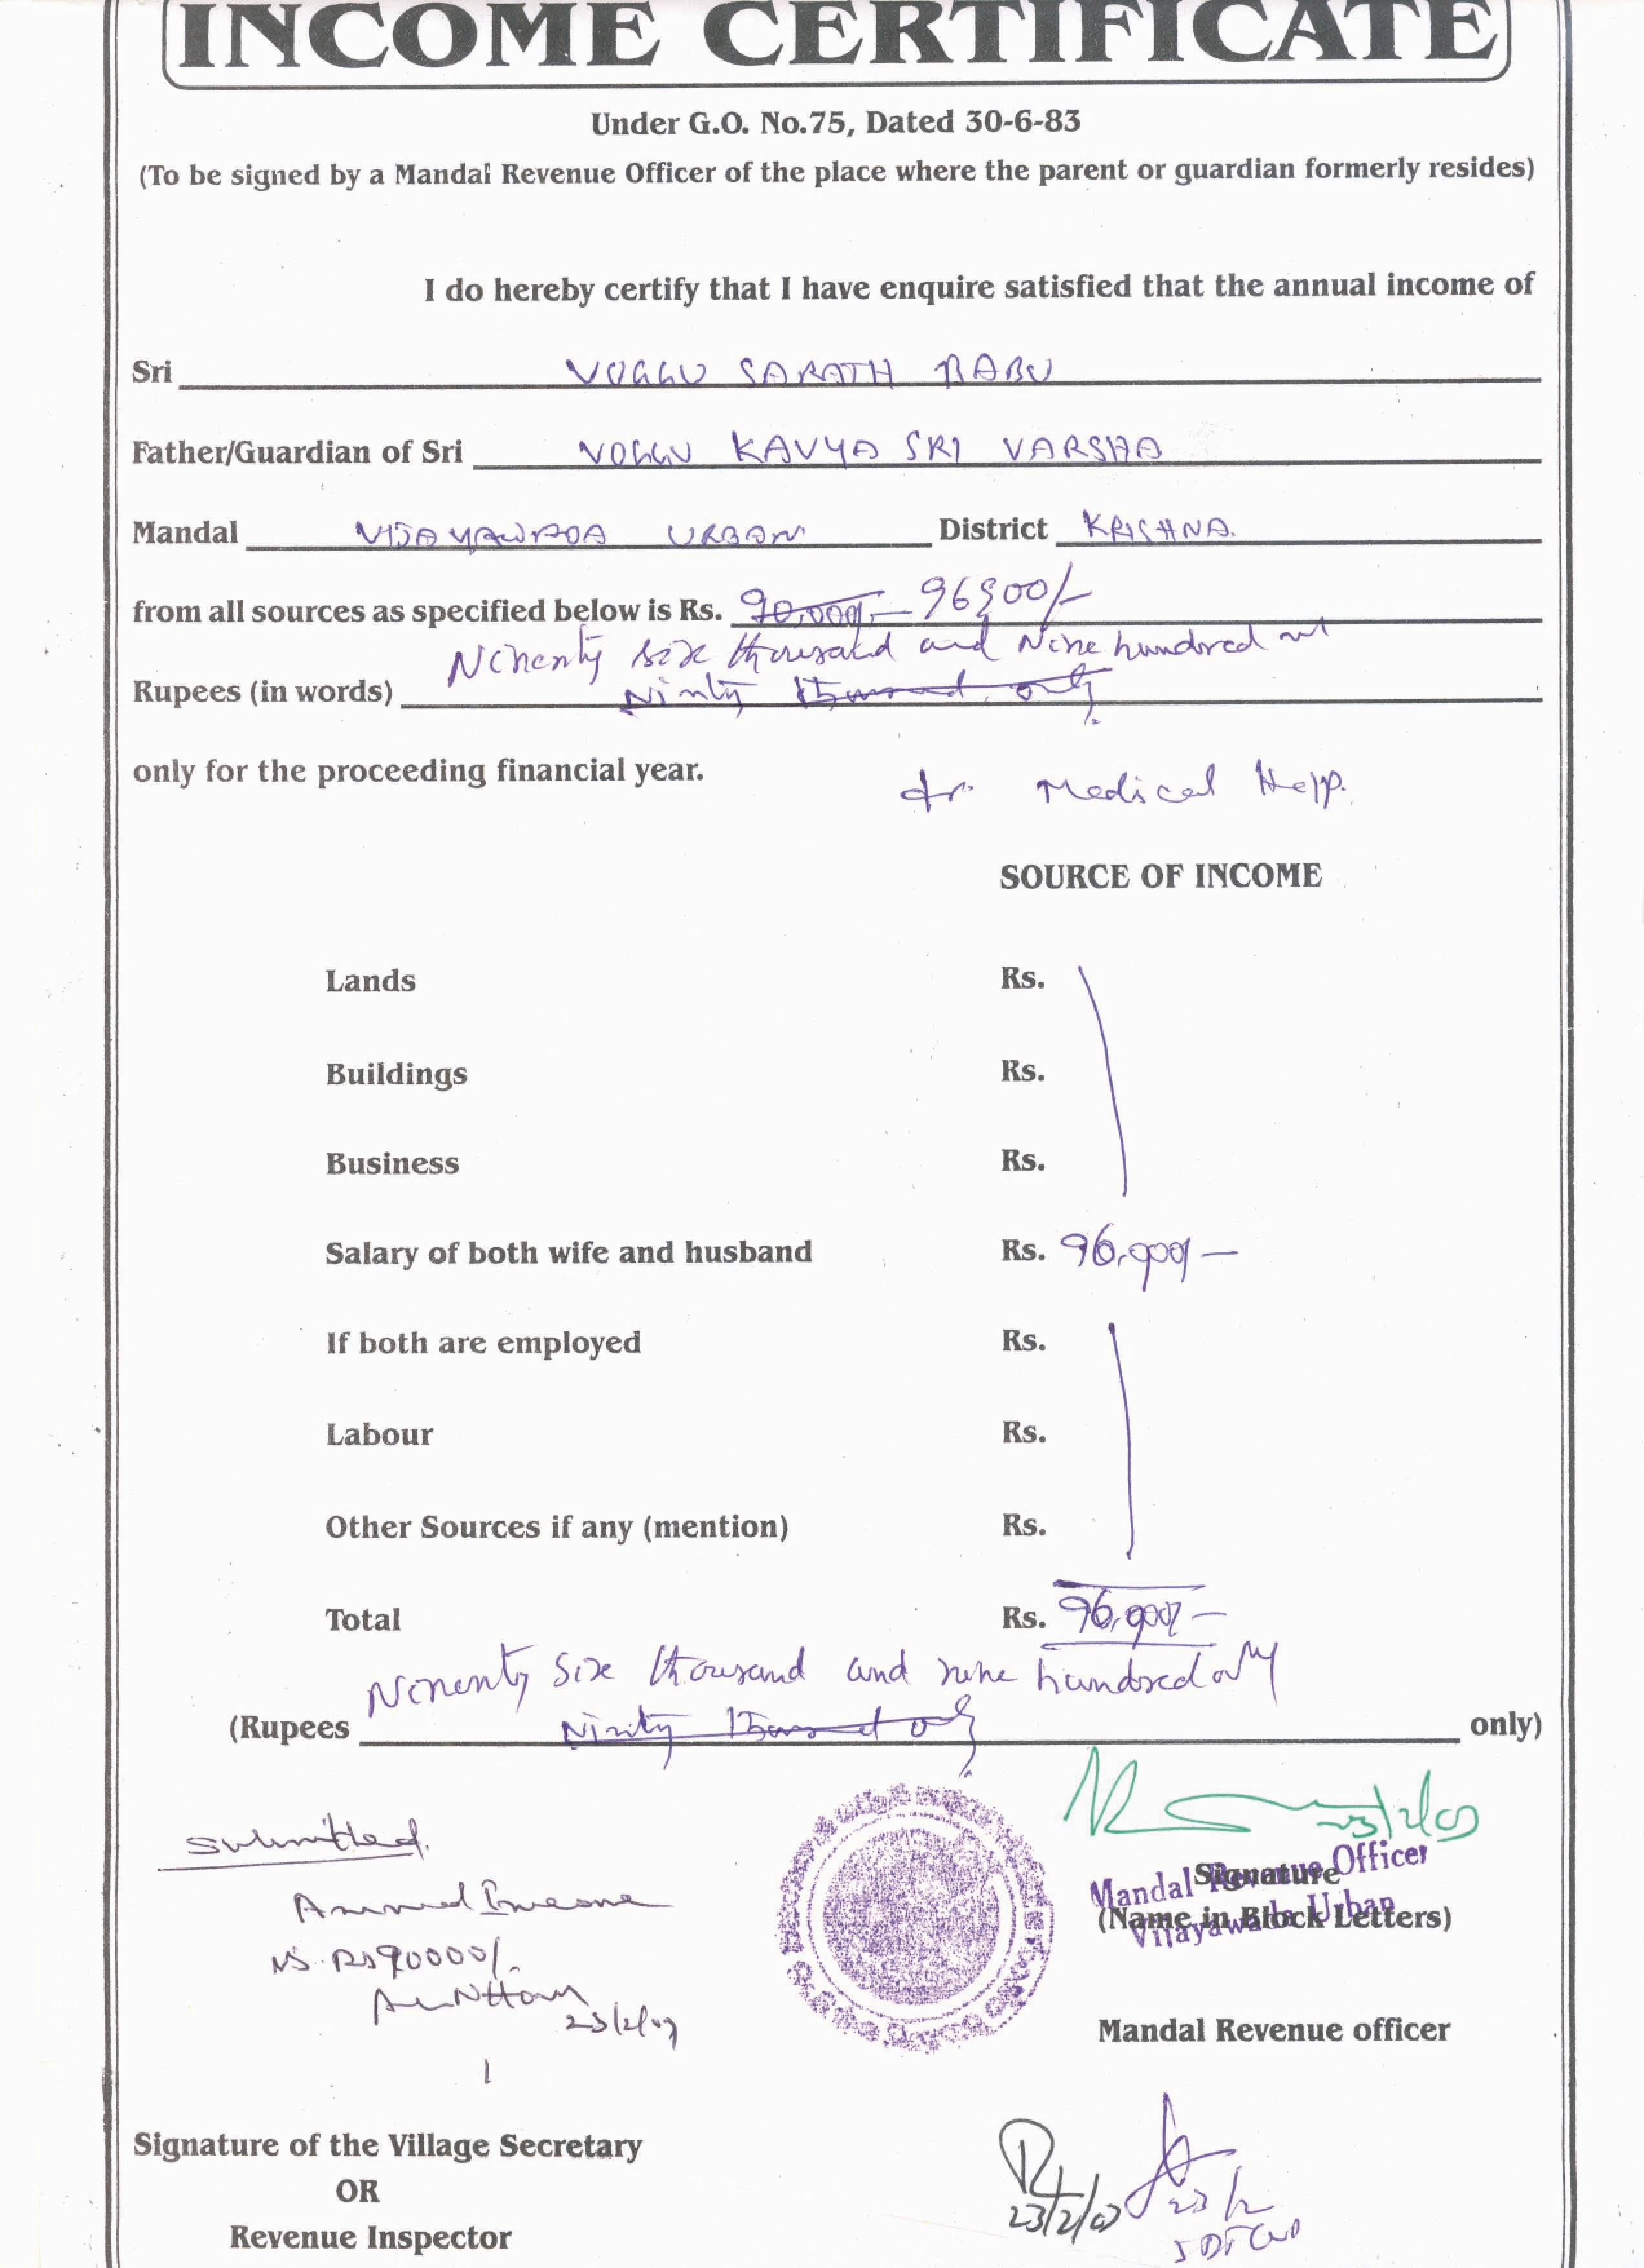 INCOME CERTIFICATE
Under G.O. No.75, Dated 30-6-83
(To be signed by a Mandal Revenue Officer of the place where the parent or guardian formerly resides)
I do hereby certify that I have enquire satisfied that the annual income of
Sri VOGGU SARATH BABU
Father/Guardian of Sri VOGGU KAVYA SRI VARSHA
Mandal VIJAYAWADA URBAN District KRISHNA.
from all sources as specified below is Rs. 90,000/- 96900/-
Ninenty six thousand and Nine hundred
Rupees (in words) Ninty thousand only.
only for the proceeding financial year. for Medical Help.
SOURCE OF INCOME
Lands Rs.
Buildings Rs.
Business Rs.
Salary of both wife and husband Rs. 96,900/-
If both are employed Rs.
Labour Rs.
Other Sources if any (mention) Rs.
Total Rs. 96,900/-
Ninenty six thousand and nine hundred only
(Rupees Ninty thousand only. only)
Submitted.
Annual Income
is Rs 90000/.
23/2/07
23/2/07
Mandal Revenue Officer
Vijayawada Urban
Signature
(Name in Block Letters)
Mandal Revenue officer
Signature of the Village Secretary
OR
Revenue Inspector
23/2/07
23/2